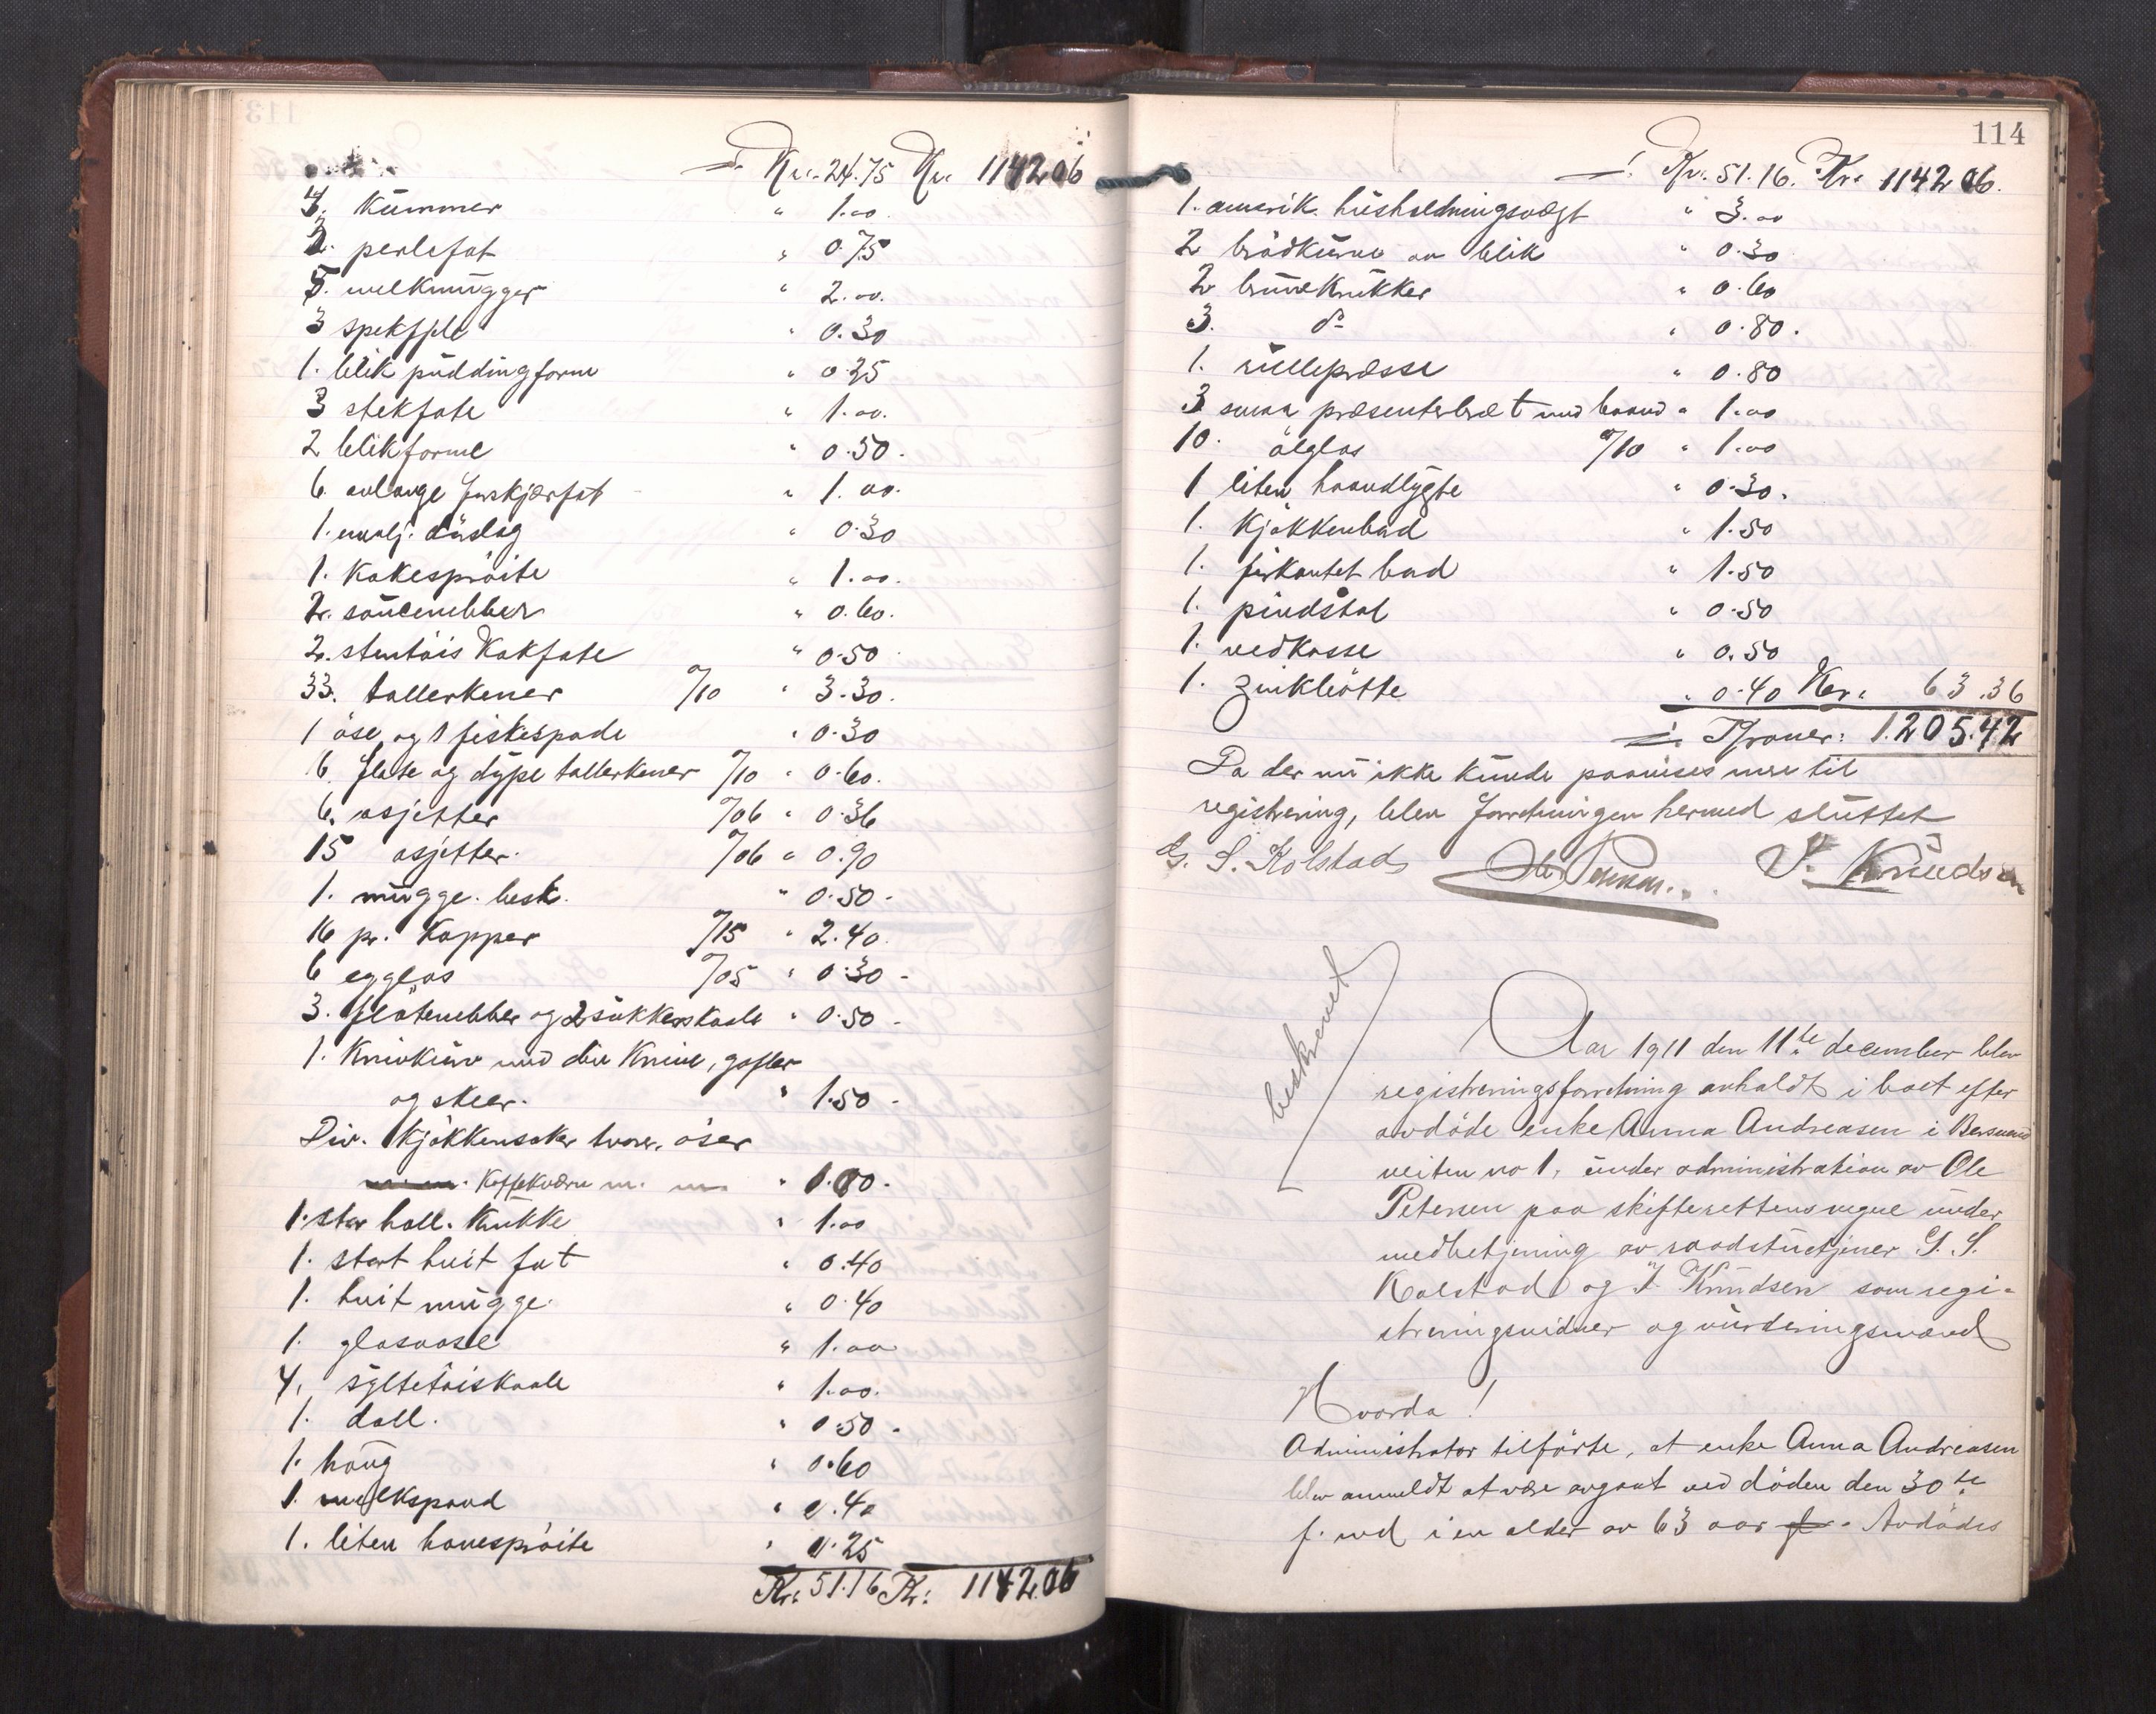 Kr. 24.75 Kr. 1142.06
4. Kummer " 1.00
2. perlefat " 0.75
5. melkmugger " 2.00.
3 spekfjele " 0.30
1. blik puddingform " 0.25
3 stekfate " 1.00.
2 blikforme " 0.50.
6. avlange forskjærfat " 1.00.
1. emalj. dørslag " 0.30
1. Kakesprøite " 1.00.
2. saucenebber " 0.60.
2. stentøis Kakfate " 0.50
33. tallerkener a/10 " 3.30.
1 øse og 1 fiskespade " 0.30
6. flate og dype tallerkener a/10 " 0.60.
6. asjetter a/06 " 0.36
15 asjetter. a/06 " 0.90
1. mugge. besk. " 0.50.
16 pr. Kopper a/15 " 2.40.
6 egglas a/05 " 0.30 -
3. fløtenebber og 2 sukkerskaale " 0.50 -
1. Knivkurv med div Knive, gafler
og skeer. " 1.50 -
Div. Kjøkkensaker tvarer, øser
Kaffekværn m. m. " 1.00.
1. stor holl. Krukke " 1.00
1. stort hvit fat " 0.40
1. hvit mugge. " 0.40
1. glasvase " 1.00
4. syltetøiskaale " 1.00.
1. dall. " 0.50 -
1. haug " 0.60
1. melkspand " 0.40
1. liten havesprøite " 0.25
Kr. 51.16 Kr. 1142.06
114
Kr. 51.16. Kr. 1142.06.
1. amerik. husholdningsvegt " 3.00
2 brødkurve av blik " 0.30
2 brune Krukker " 0.60
3. do " 0.80.
1. rullepresse " 0.80
3 smaa præsenterbræt med baand " 1.00
10. ølglas a/10 " 1.00
1 liten haandlygte " 0.30.
1. Kjøkkenbord " 1.50
1. firkantet bord " 1.50
1. pindstol " 0.50
1. vedkasse " 0.50
1. Zinkbøtte " 0.40 Kr. 63.36
Kroner: 1.205.42
Da der nu ikke kunde paavises mere til
registrering, blev forretningen hermed sluttet
G. S. Kolstad Ole Petersen. J. Knudsen
beskrevet
Aar 1911 den 11te december blev
registreringsforretning avholdt i boet efter
avdøde enke Anna Andreasen i Bersvend
veiten no 1, under administration av Ole
Petersen paa skifterettens vegne under
medbetjening av raadstuetjener G. S.
Kolstad og J. Knudsen som regi-
streringsvidner og vurderingsmænd
Hvorda!
Administrator tilførte, at enke Anna Andreasen
blev anmeldt at være avgaat ved døden den 30te
f. md i en alder av 63 aar Avdødes